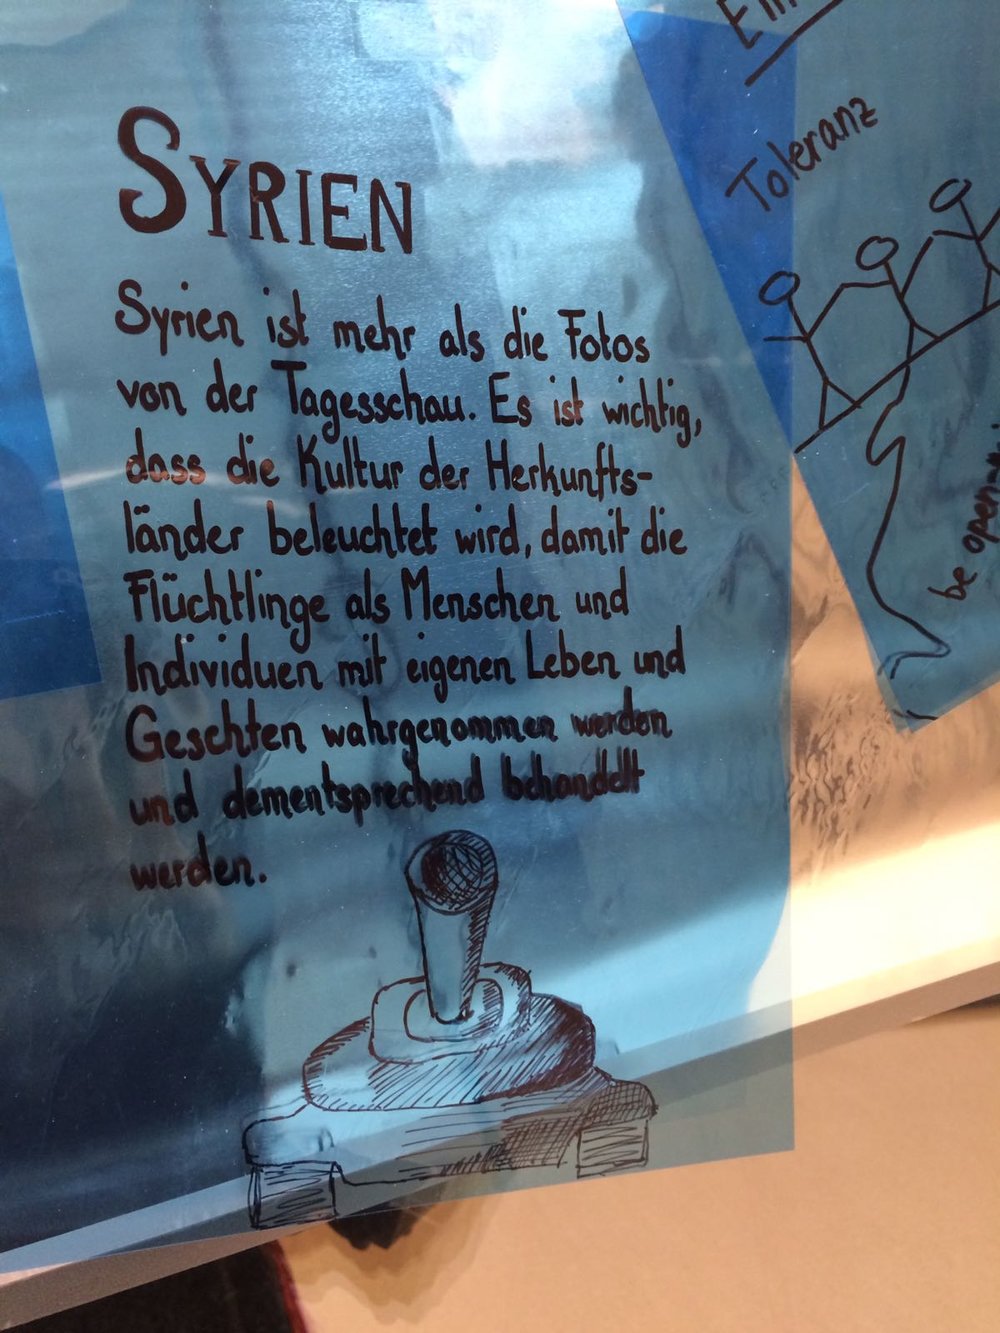 SYRIEN
Syrien ist mehr als die Fotos
von der Tagesschau. Es ist wichtig,
dass die Kultur der Herkunfts-
länder beleuchtet wird, damit die
Flüchtlinge als Menschen und
Individuen mit eigenen Leben und
Geschten wahrgenommen werden
und dementsprechend behandelt
werden.
Toleranz
be open-